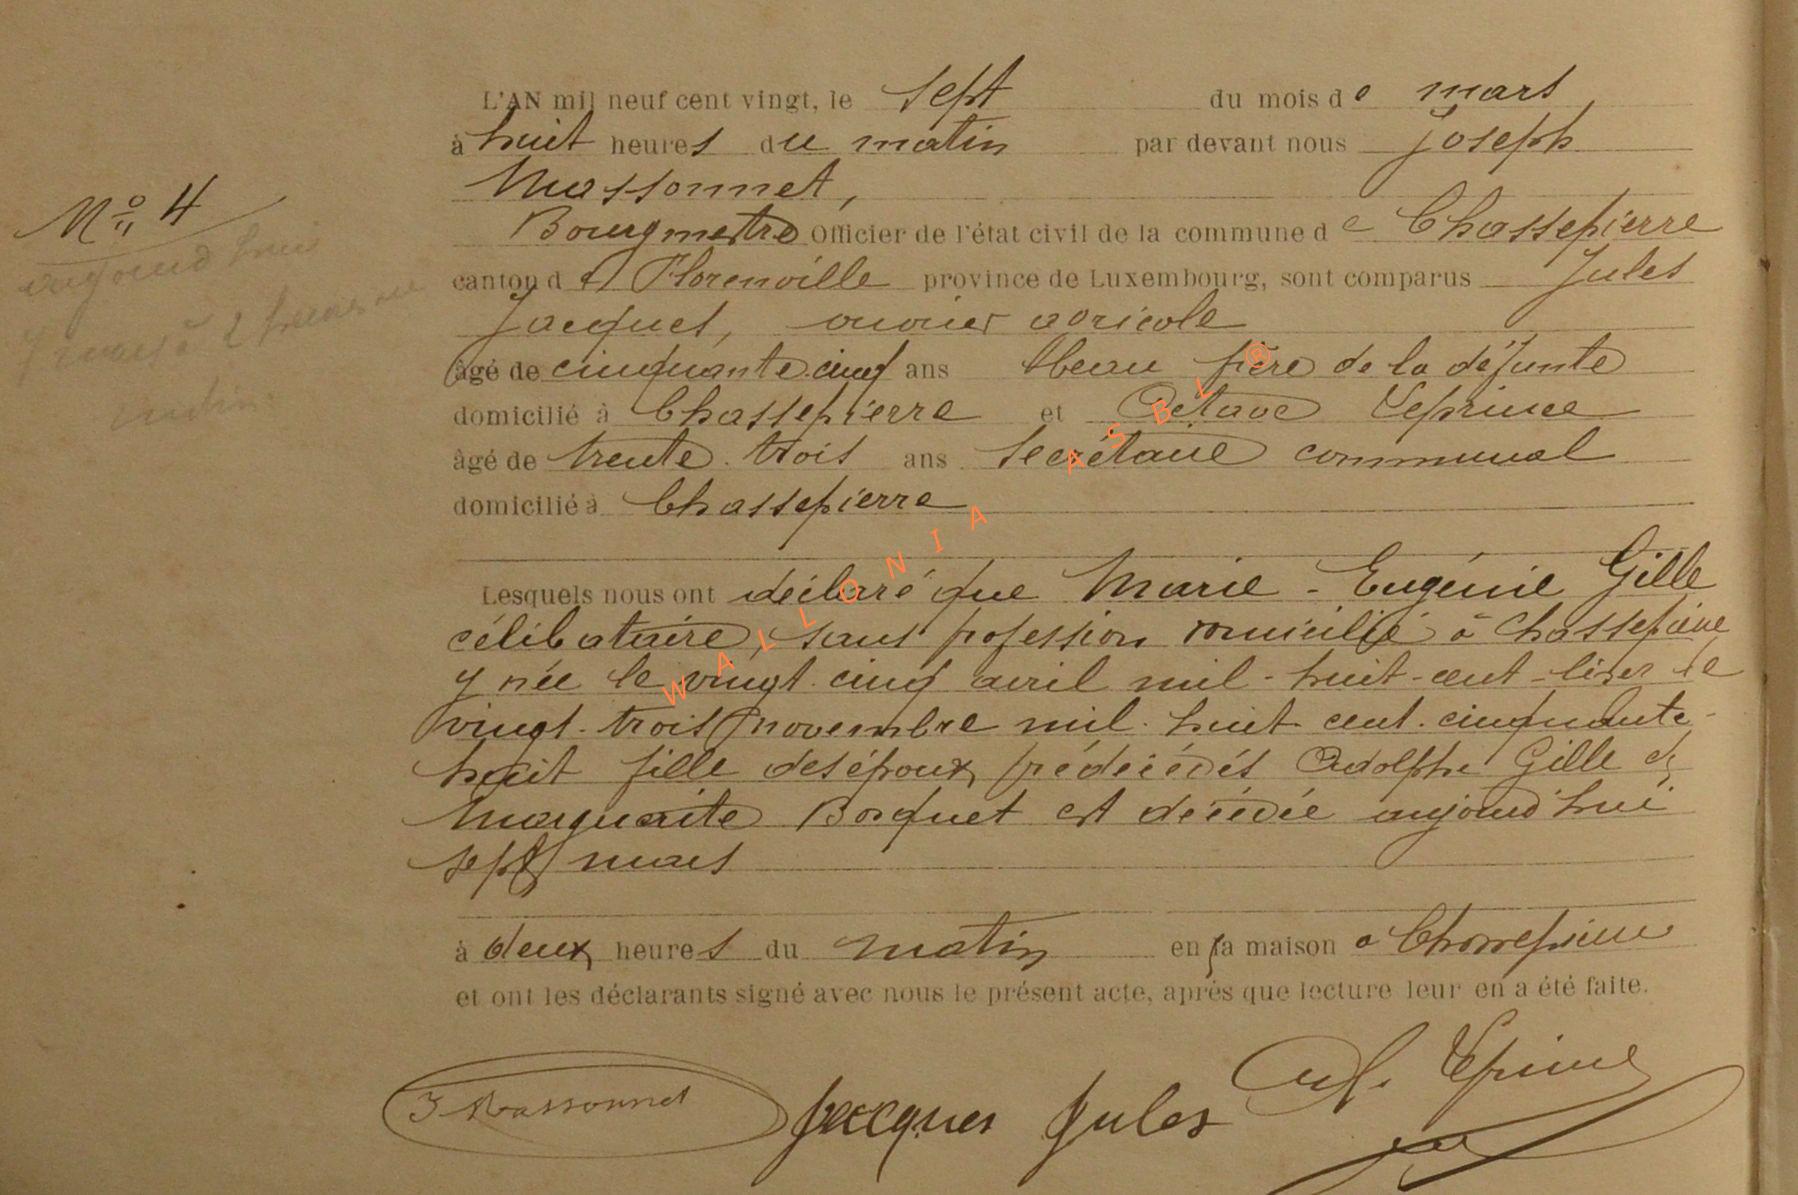 L'AN mil neuf cent vingt, le sept du mois de mars
à huit heures du matin par devant nous Joseph
Massonnet,
Bourgmestre Officier de l'état civil de la commune de Chassepierre
canton de Florenville province de Luxembourg, sont comparus Jules
Jacques, ouvrier agricole
âgé de cinquante cinq ans beau frère de la défunte
domicilié à Chassepierre et Octave Leprince
âgé de trente trois ans secrétaire communal
domicilié à Chassepierre
Lesquels nous ont déclaré que Marie-Eugénie Gille
célibataire, sans profession domicilié à Chassepierre
y née le vingt cinq avril mil-huit-cent
vingt-trois novembre mil huit cent cinquante-
huit fille des époux prédécédés Adolphe Gille et
Marguerite Bosquet est décédée aujourd'hui
sept mars
à deux heures du matin en sa maison à Chassepierre
et ont les déclarants signé avec nous le présent acte, après que lecture leur en a été faite.
J Massonnet Jacques Jules Leprince
No 4
aujourd'hui
7 mars à 2 heures du
matin.
WALLONIA ASBL ®